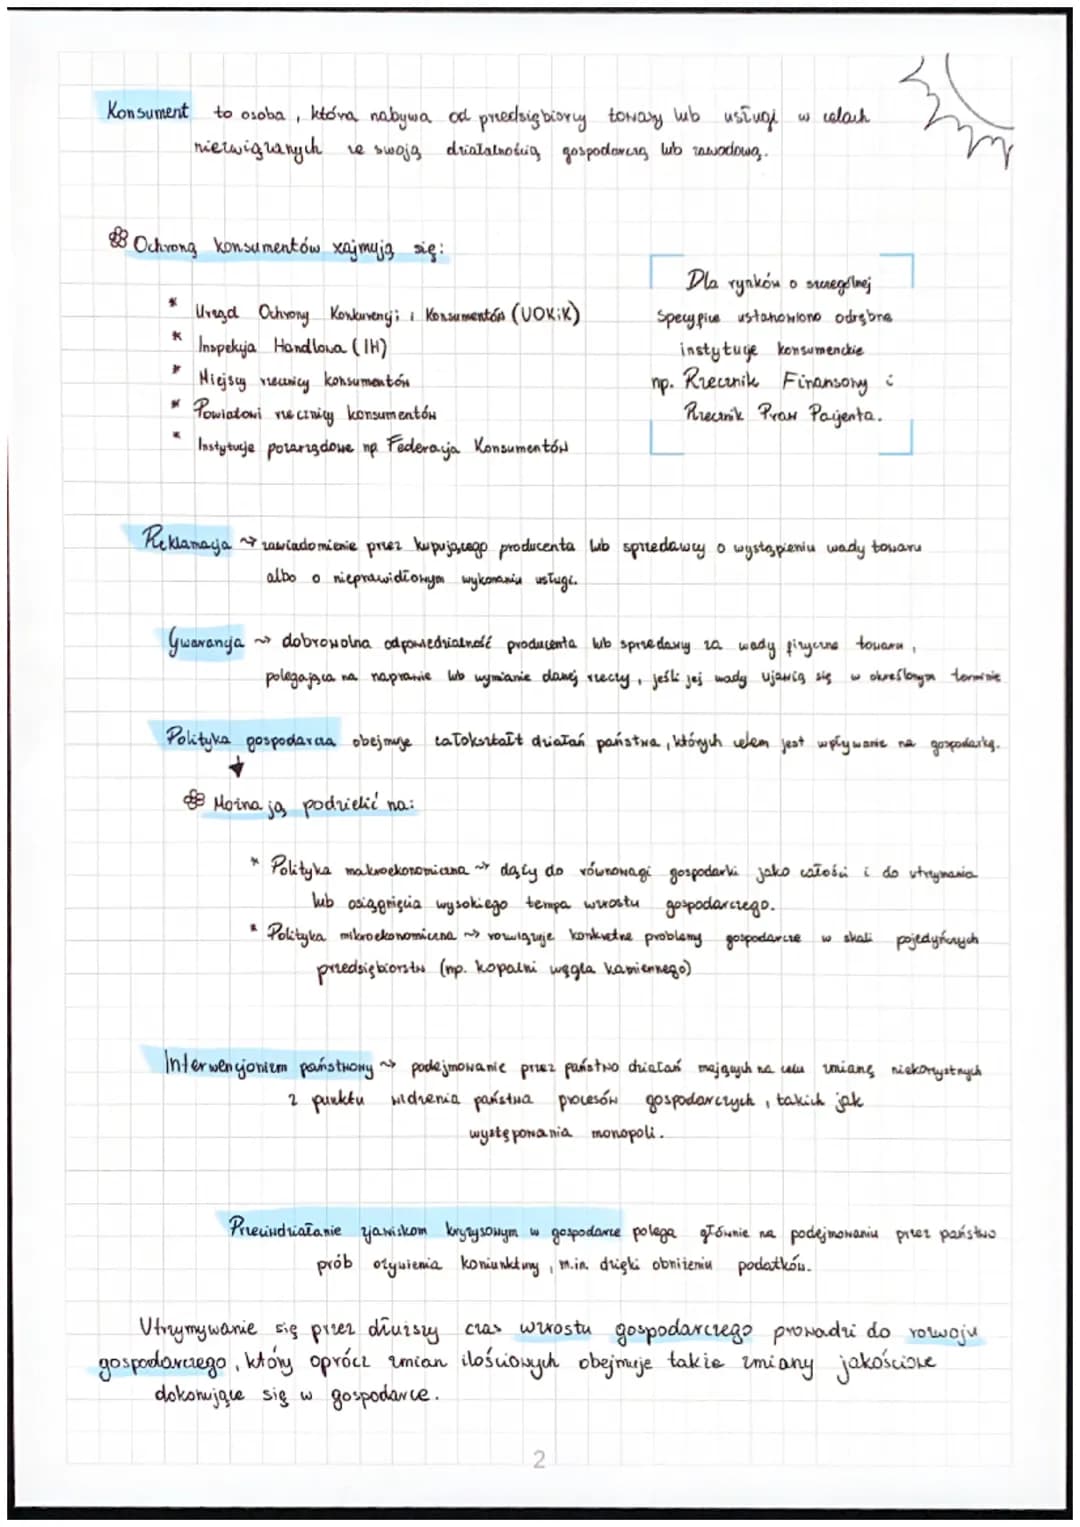 Konsument to osoba, która nabywa od przedsiębiorcy towary lub usługi w celach
niezwiązanych ze swoją działalnością gospodarczą lub zawodową.
Ochroną konsumentów zajmują się:
* Urząd Ochrony Konkurencji i Konsumentów (UOKiK)
* Inspekcja Handlowa (IH)
* Miejscy rzecznicy konsumentów
* Powiatowi rzecznicy konsumentów
* Instytucje pozarządowe np Federacja Konsumentów
Dla rynków o szczególnej
specyfice ustanowiono odrębne
instytucje konsumenckie
np. Rzecznik Finansowy i
Rzecznik Praw Pacjenta.
Reklamacja ⇝ zawiadomienie przez kupującego producenta lub sprzedawcy o wystąpieniu wady towaru
albo o nieprawidłowym wykonaniu usługi.
Gwarancja ⇝ dobrowolna odpowiedzialność producenta lub sprzedawcy za wady fizyczne towaru,
polegająca na naprawie lub wymianie danej rzeczy, jeśli jej wady ujawią się w określonym terminie
Polityka gospodarcza obejmuje całokształt działań państwa, których celem jest wpływanie na gospodarkę.
Można ją podzielić na:
* Polityka makroekonomiczna ⇝ dąży do równowagi gospodarki jako całości i do utrzymania
lub osiągnięcia wysokiego tempa wzrostu gospodarczego.
* Polityka mikroekonomiczna ⇝ rozwiązuje konkretne problemy gospodarcze w skali pojedyńczych
przedsiębiorstw (np. kopalni węgla kamiennego)
Interwencjonizm państwowy ⇝ podejmowanie przez państwo działań mających na celu zmianę niekorzystnych
z punktu widzenia państwa procesów gospodarczych, takich jak
występowania monopoli.
Przeciwdziałanie zjawiskom kryzysowym w gospodarce polega głównie na podejmowaniu przez państwo
prób ożywienia koniunktury, m.in. dzięki obniżeniu podatków.
Utrzymywanie się przez dłuższy czas wzrostu gospodarczego prowadzi do rozwoju
gospodarczego, który oprócz zmian ilościowych obejmuje także zmiany jakościowe
dokonujące się w gospodarce.
2